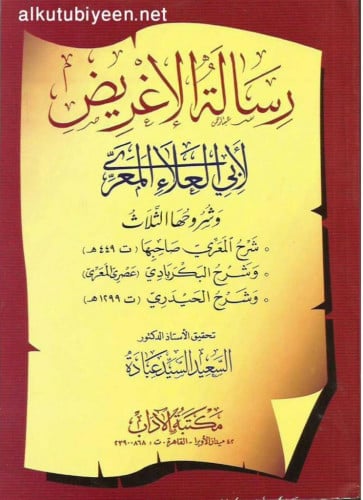 alkutubiyeen.net
رسالة الإغريض
لأبي العلاء المعري
وشروحها الثلاث
• شرح المعري صاحبها (ت ٤٤٩ هـ)
• وشرح البكربادي (عصري المعري)
• وشرح الحيدري (ت ١٢٩٩ هـ)
تحقيق الأستاذ الدكتور
السعيد السيد عبادة
مكتبة الآداب
٤٢ ميدان الأوبرا - القاهرة - ت : ٢٣٩٠٠٨٦٨